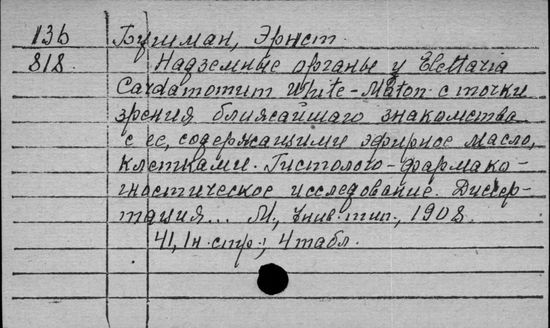 136 Бушман, Эрнст.
818. Надземные органы у Elettaria
Cardamomum White-Maton с точки
зрения ближайшаго знакомства
с ее, содержащими эфирное масло,
клетками. Гистолого-фармако-
гностическое исследование. Диссер-
тация... М., Унив. тип., 1908.
41, 1 н. стр.; 4 табл.